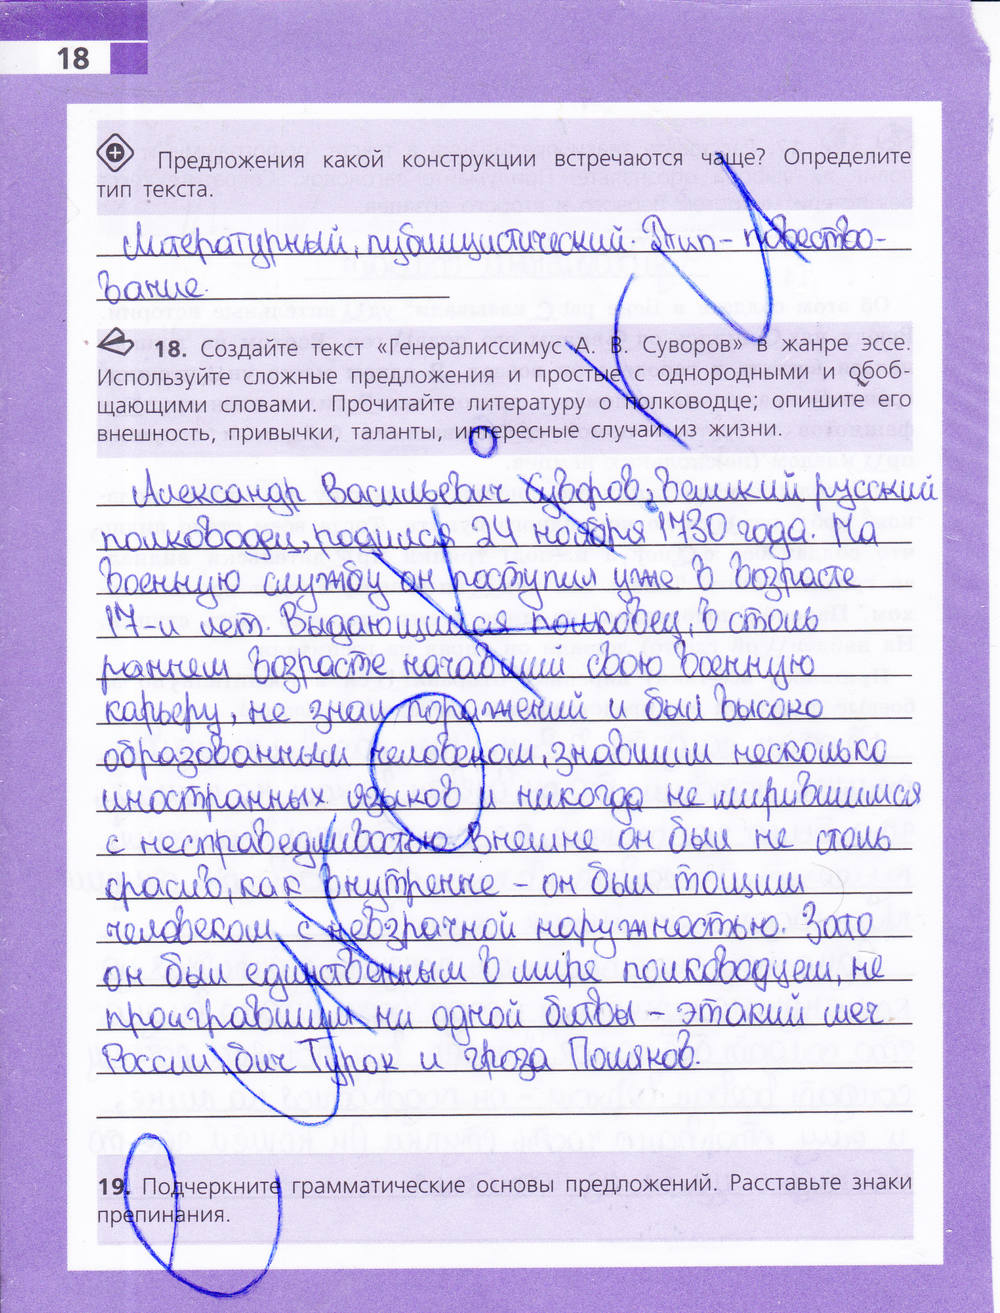 18
Предложения какой конструкции встречаются чаще? Определите
тип текста.
Литературный, публицистический. Тип – повество-
вание.
18. Создайте текст «Генералиссимус А. В. Суворов» в жанре эссе.
Используйте сложные предложения и простые с однородными и обоб-
щающими словами. Прочитайте литературу о полководце; опишите его
внешность, привычки, таланты, интересные случаи из жизни.
Александр Васильевич Суворов, великий русский
полководец, родился 24 ноября 1730 года. На
военную службу он поступил уже в возрасте
17-и лет. Выдающийся полковец, в столь
раннем возрасте начавший свою военную
карьеру, не знал поражений и был высоко
образованным человеком, знавшим несколько
иностранных языков и никогда не мирившимся
с несправедливостью. Внешне он был не столь
красив, как внутренне – он был тощим
человеком с невзрачной наружностью. Зато
он был единственным в мире полководцем, не
проигравшим ни одной битвы – этакий меч
России, бич Турок и гроза Поляков.
19. Подчеркните грамматические основы предложений. Расставьте знаки
препинания.